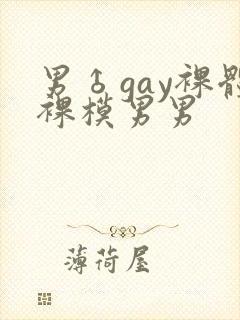 男♂gay裸體
裸模男男
薄荷屋